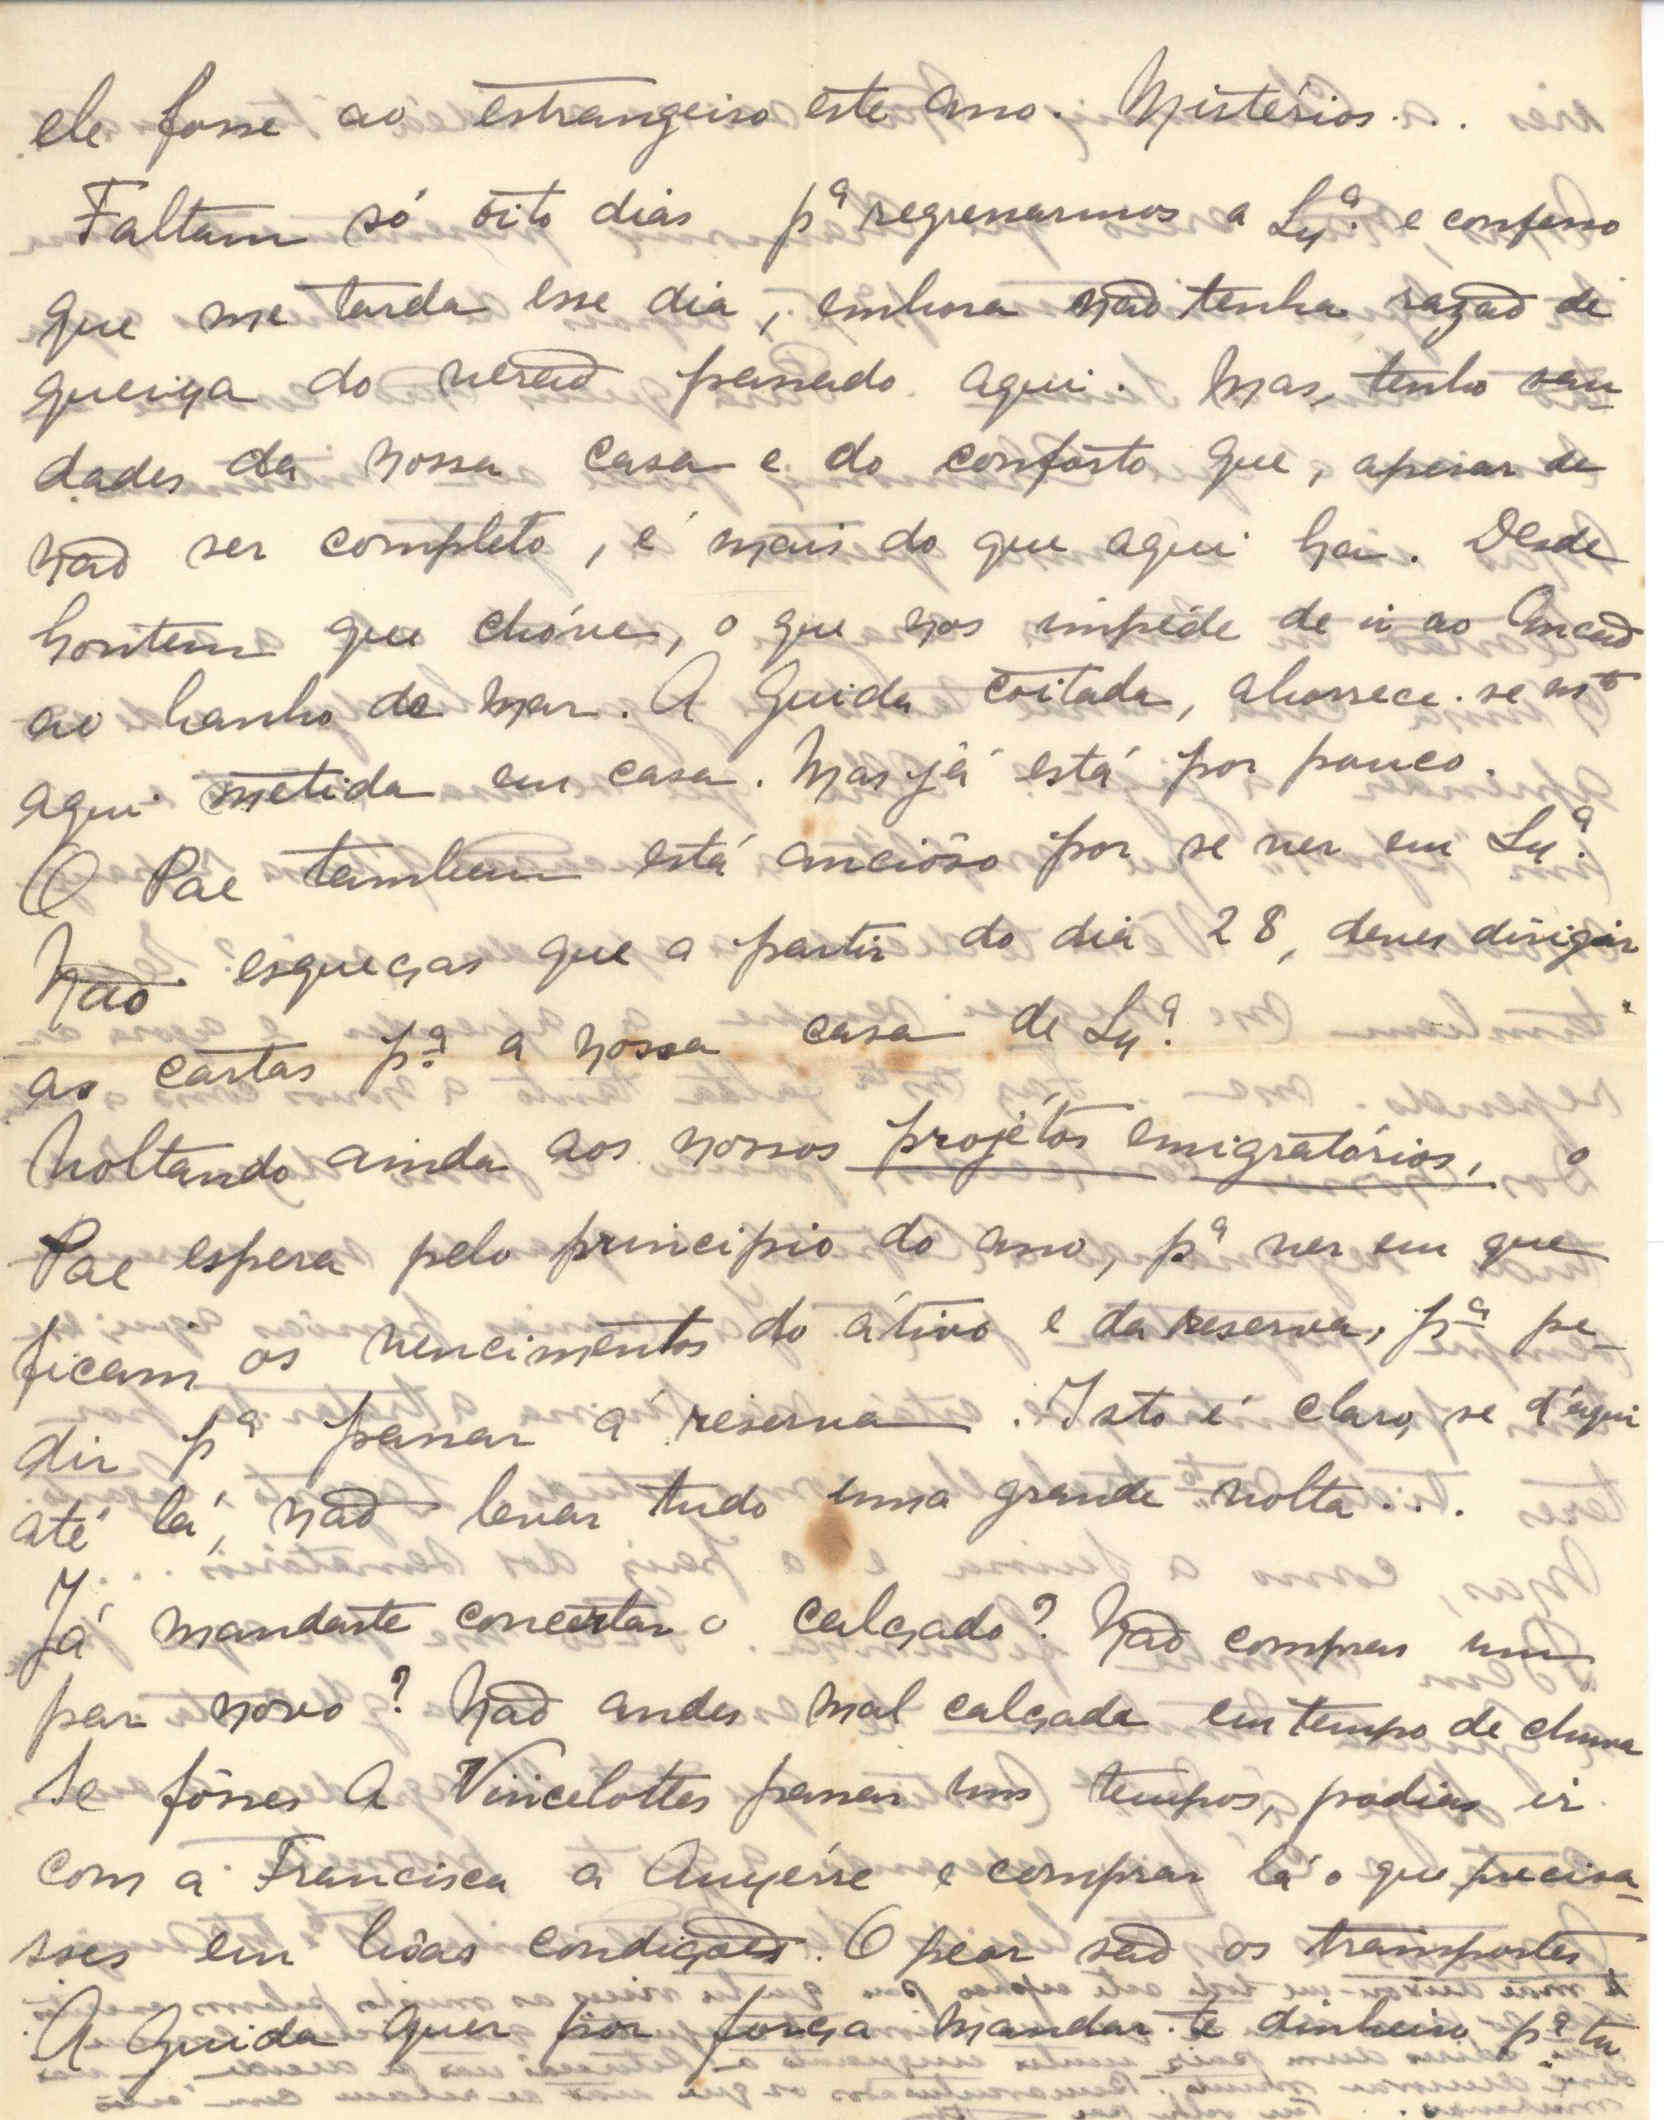 ele fosse ao estrangeiro este ano. Mistérios...
Faltam só oito dias pª regressarmos a Lxª. e confesso
que me tarda esse dia, embora não tenha razão de
queixa do verão passado aqui. Mas, tenho sau-
dades da nossa casa e do confôrto que, apesar de
não ser completo, é mais do que aqui ha. Desde
hontem que chóve, o que nos impéde de ir ao Ancão
ao banho de mar. A Guida coitada, aborrece-se mtº
aqui metida em casa. Mas já está por pouco.
O Pae tambem está anciôso por se ver em Lxª.
Não esqueças que a partir do dia 28, deves dirigir
as cartas pª a nossa casa de Lxª.
Voltando ainda aos nossos projétos emigratórios, o
Pae espera pelo principio do ano, pª ver em que
ficam os vencimentos do átivo e da reserva, pª pe-
dir pª passar á reserva. Isto é claro, se d'aqui
até lá, não levar tudo uma grande volta...
Já mandaste concertar o calçado? Não compras um
par novo? Não andes mal calçada em tempo de chuva
Se fôsses a Vincelottes passar uns tempos, podias ir
com a Francisca a Auxérre e comprar lá o que precisa-
sses em bôas condições. O peor são os transportes
A Guida quer por força mandar-te dinheiro pª tu